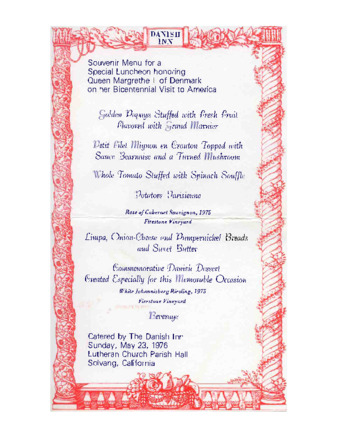 DANISH
INN
Souvenir Menu for a
Special Luncheon honoring
Queen Margrethe II of Denmark
on her Bicentennial Visit to America
Golden Papaya Stuffed with Fresh Fruit
Flavored with Grand Marnier
Petit Filet Mignon en Crouton Topped with
Sauce Bearnaise and a Turned Mushroom
Whole Tomato Stuffed with Spinach Souffle
Potatoes Parisienne
Rose of Cabernet Sauvignon, 1975
Firestone Vineyard
Limpa, Onion-Cheese and Pumpernickel Breads
and Sweet Butter
Commemorative Danish Dessert
Created Especially for this Memorable Occasion
White Johannisberg Riesling, 1975
Firestone Vineyard
Beverage
Catered by The Danish Inn
Sunday, May 23, 1976
Lutheran Church Parish Hall
Solvang, California